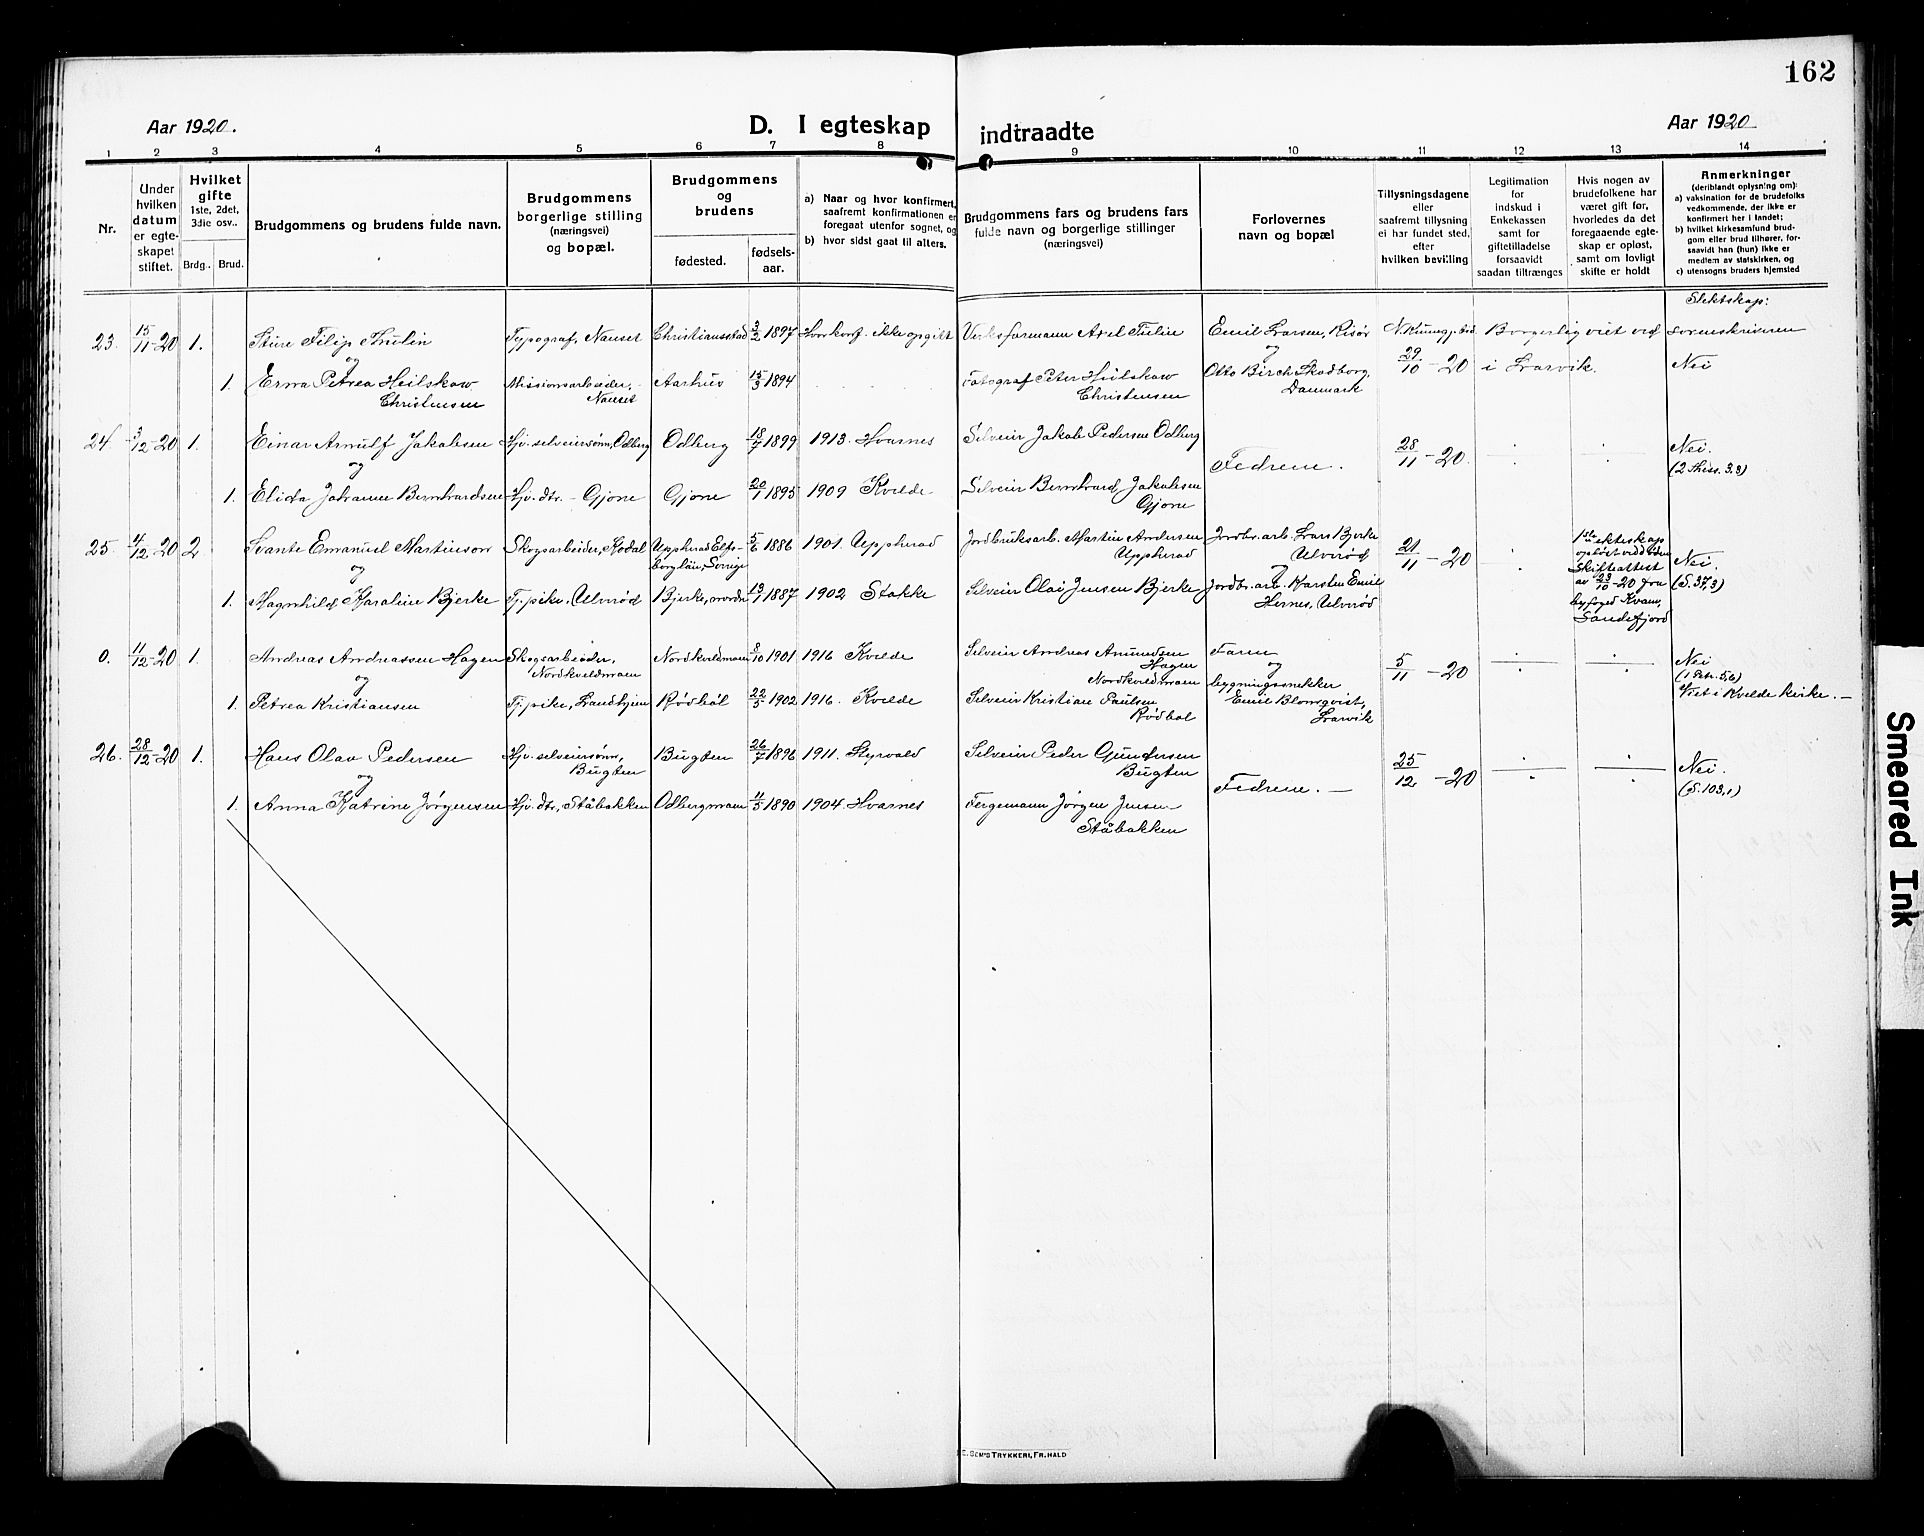 162
Aar 1920.
D. I egteskap
indtraadte
Aar 1920
1 2 3 4 5 6 7 8 9 10 11 12 13 14
Nr.
Under
hvilken
datum
er egte-
skapet
stiftet.
Hvilket
gifte
1ste, 2det,
3die osv..
Brdg..
Brud.
Brudgommens og brudens fulde navn.
Brudgommens
borgerlige stilling
(næringsvei)
og bopæl.
Brudgommens
og
brudens
fødested.
fødsels-
aar.
a) Naar og hvor konfirmert,
saafremt konfirmationen er
foregaat utenfor sognet, og
b) hvor sidst gaat til alters.
Brudgommens fars og brudens fars
fulde navn og borgerlige stillinger
(næringsvei)
Forlovernes
navn og bopæl
Tillysningsdagene
eller
saafremt tillysning
ei har fundet sted,
efter
hvilken bevilling
Legitimation
for
indskud i
Enkekassen
samt for
giftetilladelse
forsaavidt
saadan tiltrænges
Hvis nogen av
brudefolkene har
været gift før,
hvorledes da det
foregaaende egte-
skap er opløst,
samt om lovligt
skifte er holdt
Anmerkninger
(deriblandt oplysning om):
a) vaksination for de brudefolks
vedkommende, der ikke er
konfirmert her i landet;
b) hvilket kirkesamfund brud-
gom eller brud tilhører, for-
saavidt han (hun) ikke er
medlem av statskirken, og
c) utensogns bruders hjemsted
Slektskap:
23. 15/11-20 1. Sture Filip Thulin Typograf, Nanset Christiansstad 3/2 1897 Hvor konf. ikke opgitt Verksformann Axel Tulin Emil Larsen, Risør Borgerlig viet ved sorenskriveren
og og 29/10-20 i Larvik. Nei
1. Erna Petrea Heilskow Missionsarbeider, Aarhus 15/3 1894 Fotograf Peter Heilskow Otto Birch Skadborg,
Christensen Nanset Christensen Danmark
24. 3/12-20 1. Einar Arnulf Jakobsen Hjv. selveiersønn, Odberg Odberg 18/7 1899 1913. Hvarnes Selveier Jakob Pedersen Odberg 28/11-20. Nei.
og Fedrene. (2 Thess. 3.3)
1. Elida Johanne Bernhardsen Hjv. dtr. - Gjone Gjone 20/1 1895 1909 Kvelde Selveier Bernhard Jakobsen
Gjone
25. 4/12-20 2 Svante Emanuel Martinson Skogsarbeider, Kodal Upphärad Elfs-
borglän, Sverige 5/6 1886 1901. Upphärad Jordbruksarb. Martin Andersen
Upphärad Jordbr. arb. Lars Bjerke
Ulverød
og og 21/11-20 1ste ekteskap
opløst ved døden
Skifteattest
av 23/10-20 fra
byfoged Kvam,
Sandefjord Nei.
(S. 37,3)
1. Magnhild Karoline Bjerke Tj. pike, Ulverød Bjerke, nordre 13/1 1887 1902 Stokke Selveier Olai Jensen Bjerke Jordbr. arb. Karsten Emil
Hernes, Ulverød
0. 11/12-20 1. Andreas Andreassen Hagen Skogsarbeider,
Nordkveldmoen Nordkveldmoen 8/10 1901 1916 Kvelde Selveier Andreas Amundsen
Hagen
Nordkveldmoen Faren
og og 5/11-20 Nei
(1 Petr. 5,6)
Viet i Kvelde kirke.
1. Petrea Kristiansen Tj. pike, Landhjem Rødbøl 22/5 1902 1916. Kvelde Selveier Kristian Paulsen
Rødbøl bygningssnekker
Emil Blomqvist,
Larvik
26. 28/12-20 1. Hans Olav Pedersen Hjv. selveiersønn,
Bugten Bugten 26/7 1896 1911. Styrvold Selveier Peder Gundersen
Bugten 25/12-20 Nei.
og Fedrene. (S. 103,1)
1. Anna Katrine Jørgensen Hjv. dtr., Ståbakken Odbergmoen 4/5 1890 1904 Hvarnes Fergemann Jørgen Jensen
Ståbakken
E. SEM'S TRYKKERI, FR.HALD
Smeared Ink